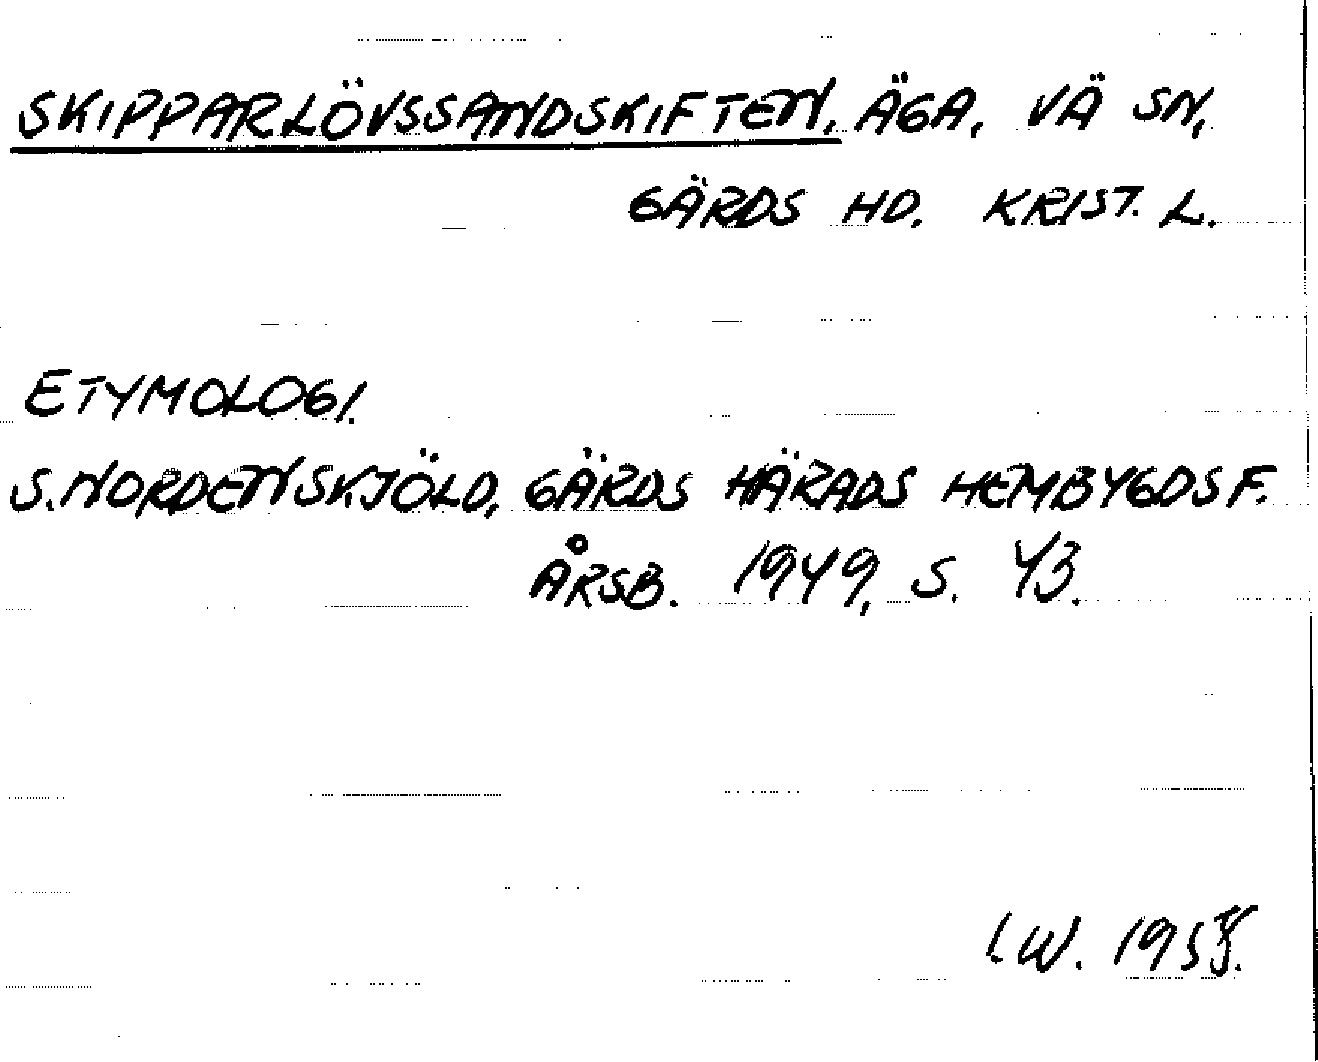 SKIPPARLÖVSSANDSKIFTEN, ÄGA, VÄ SN,
GÄRDS HD. KRIST. L.
ETYMOLOGI.
S. NORDENSKJÖLD, GÄRDS HÄRADS HEMBYGDSF.
ÅRSB. 1949, S. 43.
I.W.